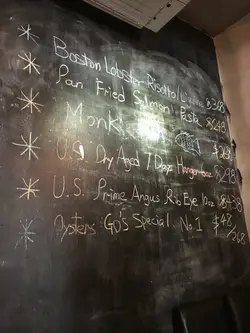 Boston Lobster Risotto $368
Pan Fried Salmon Pasta $248
Monk
U.S. Dry Aged 7 Days $298
U.S. Prime Angus Rib Eye 10oz $438
Oysters GD's Special No.1 $48
/268